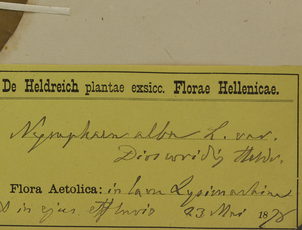 De Heldreich plantae exsicc. Florae Hellenicae.
Nymphaea alba L. var.
Dioscoridis Heldr.
Flora Aetolica: in lacu Lysimachiae
in ejus effluvio 23 Mai 187